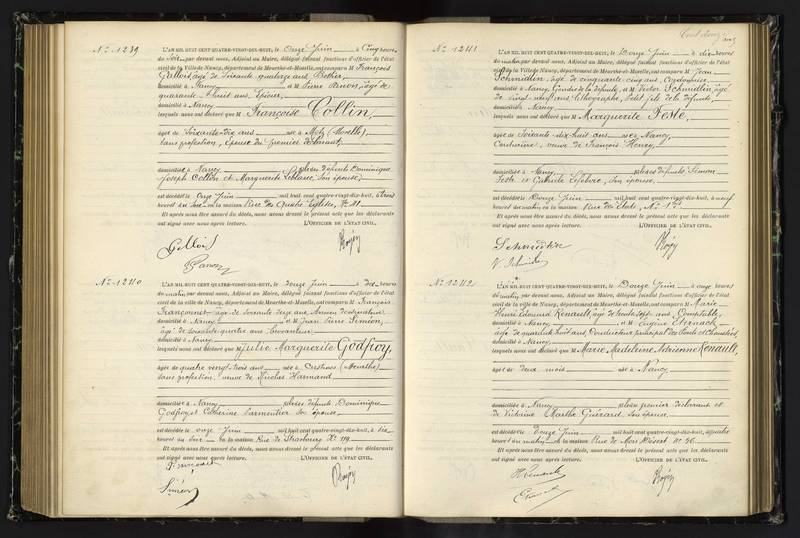 N° 1239
L'AN MIL HUIT CENT QUATRE-VINGT-DIX-HUIT, le Onze Juin à Cinq heures
du soir par devant nous, Adjoint au Maire, délégué faisant fonctions d'officier de l'état
civil de la Ville de Nancy, département de Meurthe-et-Moselle, ont comparu M François
Gallois, âgé de soixante quatorze ans
domicilié à Nancy et M Pierre âgé de
quarante huit ans
domicilié à Nancy
lesquels nous ont déclaré que M Françoise Collin,
âgée de Soixante-Dix ans née à Metz (Moselle),
sans profession, épouse du premier déclarant,
domiciliée à Nancy des défunts Dominique
Joseph Collin et Marguerite son épouse,
est décédée le onze Juin mil huit cent quatre-vingt-dix-huit, à trois
heures du soir en la maison Rue des Quatre Eglises, N°
Et après nous être assuré du décès, nous avons dressé le présent acte que les déclarants
ont signé avec nous après lecture. L'OFFICIER DE L'ÉTAT CIVIL,
Gallois
N° 1240
L'AN MIL HUIT CENT QUATRE-VINGT-DIX-HUIT, le douze Juin à dix heures
du matin par devant nous, Adjoint au Maire, délégué faisant fonctions d'officier de l'état
civil de la ville de Nancy, département de Meurthe-et-Moselle, ont comparu M François
Françonnet âgé de soixante ans, ancien
domicilié à Nancy et M Jean Pierre Siméon,
âgé de soixante quatre ans
domicilié à Nancy
lesquels nous ont déclaré que M Julie Marguerite Godfroy,
âgée de quatre vingt trois ans née à (Meurthe)
sans profession, veuve de Nicolas Harmand
domiciliée à Nancy des défunts Dominique
Godfroy et Catherine Parmentier son épouse,
est décédée le onze Juin mil huit cent quatre-vingt-dix-huit, à dix
heures du soir en la maison Rue de Strasbourg N° 119
Et après nous être assuré du décès, nous avons dressé le présent acte que les déclarants
ont signé avec nous après lecture. L'OFFICIER DE L'ÉTAT CIVIL,
Siméon
N° 1241
L'AN MIL HUIT CENT QUATRE-VINGT-DIX-HUIT, le Douze Juin à dix heures
du matin par devant nous, Adjoint au Maire, délégué faisant fonctions d'officier de l'état
civil de la Ville de Nancy, département de Meurthe-et-Moselle, ont comparu M Jean
Schmidlin, âgé de cinquante cinq ans, Cordonnier,
domicilié à Nancy, Gendre de la défunte, et M Victor Schmidlin, âgé
de vingt neuf ans lithographe, Petit fils de la défunte,
domicilié à Nancy
lesquels nous ont déclaré que M Marguerite Feste,
âgée de Soixante dix-huit ans née à Nancy,
Couturière, veuve de François Henry
domiciliée à Nancy des défunts Simon
Feste et Gabrielle Lefebvre, son épouse
est décédée le Douze Juin mil huit cent quatre-vingt-dix-huit, à neuf
heures du matin en la maison Rue des
Et après nous être assuré du décès, nous avons dressé le présent acte que les déclarants
ont signé avec nous après lecture. L'OFFICIER DE L'ÉTAT CIVIL,
N° 1242
L'AN MIL HUIT CENT QUATRE-VINGT-DIX-HUIT, le Douze Juin à onze heures
du matin, par devant nous, Adjoint au Maire, délégué faisant fonctions d'officier de l'état
civil de la ville de Nancy, département de Meurthe-et-Moselle, ont comparu M Marie
Henri Edouard Renault, âgé de trente sept ans Comptable,
domicilié à Nancy et M Eugène
âgé de quarante huit ans, Conducteur principal des Ponts et Chaussées
domicilié à Nancy
lesquels nous ont déclaré que M Marie Madeleine Adrienne Renault,
âgée de deux mois née à Nancy
domiciliée à Nancy du premier déclarant et
de Victorine Marthe Guérard son épouse
est décédée le Douze Juin mil huit cent quatre-vingt-dix-huit, à quatre
heures du matin en la maison Rue de Mon Désert N° 36
Et après nous être assuré du décès, nous avons dressé le présent acte que les déclarants
ont signé avec nous après lecture. L'OFFICIER DE L'ÉTAT CIVIL,
H Renault